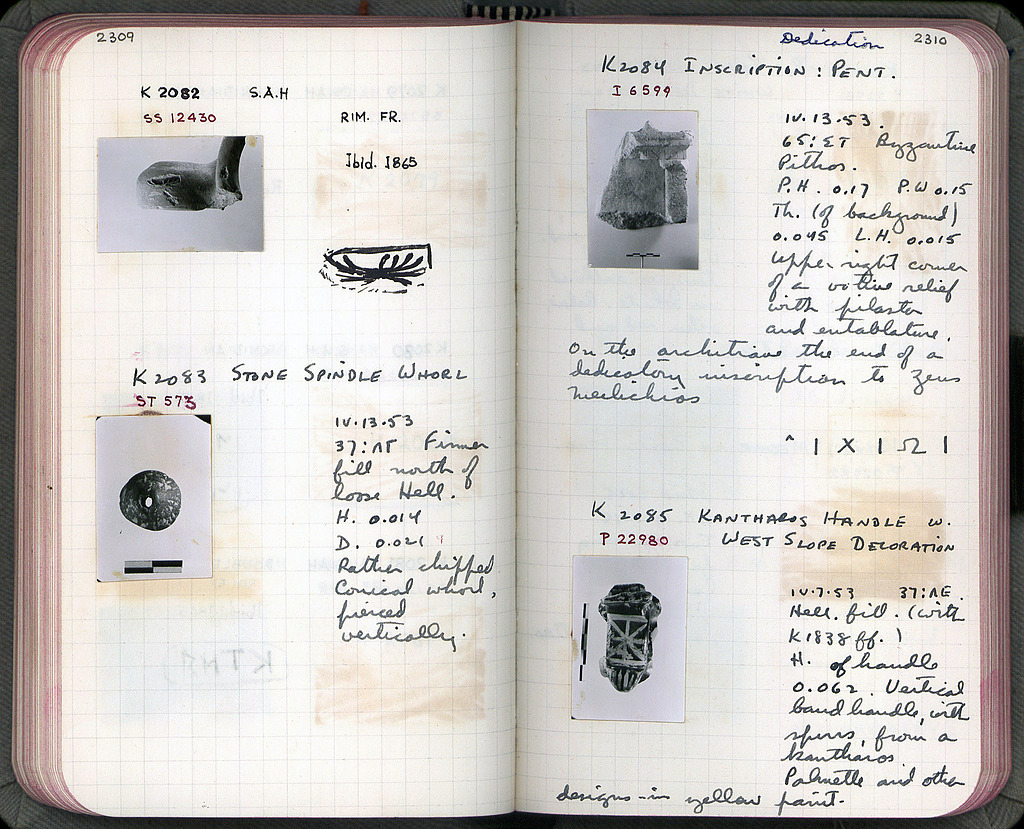 2309
K 2082 S.A.H
SS 12430
RIM. FR.
Ibid. 1865
K 2083 STONE SPINDLE WHORL
ST 573
IV.13.53
37:ΛΓ Firmer
fill north of
loose Hell.
H. 0.014
D. 0.021
Rather chipped
Conical whorl,
pierced
vertically.
2310
Dedication
K 2084 INSCRIPTION: PENT.
I 6599
IV.13.53.
65:ΣΤ Byzantine
Pithos.
P.H. 0.17 P.W 0.15
Th. (of background)
0.045 L.H. 0.015
Upper right corner
of a votive relief
with pilaster
and entablature.
On the architrave the end of a
dedicatory inscription to Zeus
Meilichios
^ I X I Ω I
K 2085 KANTHAROS HANDLE W.
WEST SLOPE DECORATION
P 22980
IV.7.53 37:ΛΕ.
Hell. fill. (with
K1838 ff.)
H. of handle
0.062. Vertical
band handle, with
spurs, from a
kantharos.
Palmette and other
designs in yellow paint.